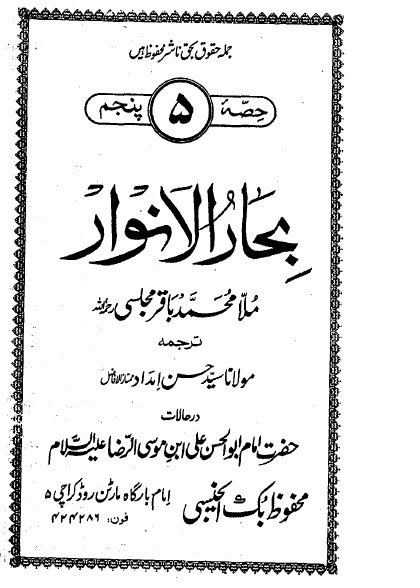 جملہ حقوق بحق ناشر محفوظ ہیں
حصہ ۵ پنجم
بحار الانوار
ملا محمد باقر مجلسی رحمۃ اللہ
ترجمہ
مولانا سید حسن امداد ممتاز الافاضل
در حالات
حضرت امام ابوالحسن علی ابن موسیٰ الرضا علیہ السلام
محفوظ بک ایجنسی امام بارگاہ مارٹن روڈ کراچی ۵
فون: ۴۲۴۲۸۶